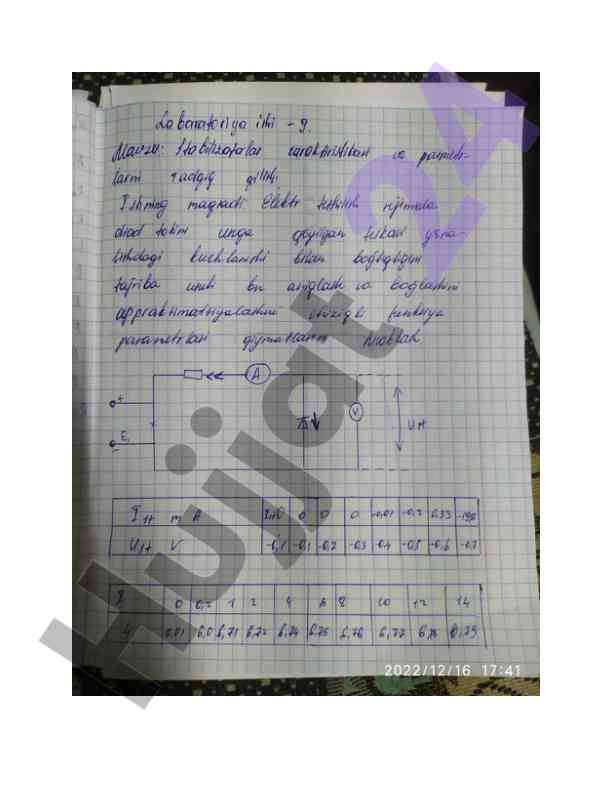 Laboratoriya ishi - 9.
Mavzu: Stabilitronlar xarakteristikasi va parametr-
larni tadqiq qilish.
Ishning maqsadi Elektr teshilish rejimida
diod tokini unga qo'yilgan teskari yo'na-
lishdagi kuchlanishi bilan bog'liqligini
tajriba usuli b-n aniqlash va bog'lanishni
approksimatsiyalashni chiziqli funksiya
parametrlari qiymatlarini hisoblash
A
+
V
E1
-
I st mA 0 0 0 -0,01 -0,2
Ust V -0,1 -0,1 -0,2 -0,3 -0,4 -0,5 -0,6 -0,7
I 0 0,2 1 2 4 8 10 12 14
U 0,01 6,71 6,72 6,74 6,75 6,76 6,77
2022/12/16 17:41
Hujjat 24